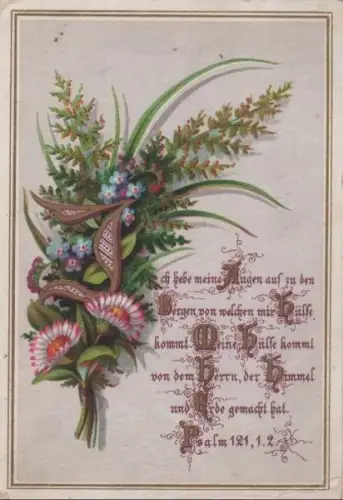 Ich hebe meine Augen auf zu den
Bergen, von welchen mir Hülfe
kommt. Meine Hülfe kommt
von dem Herrn, der Himmel
und Erde gemacht hat.
Psalm 121, 1. 2.